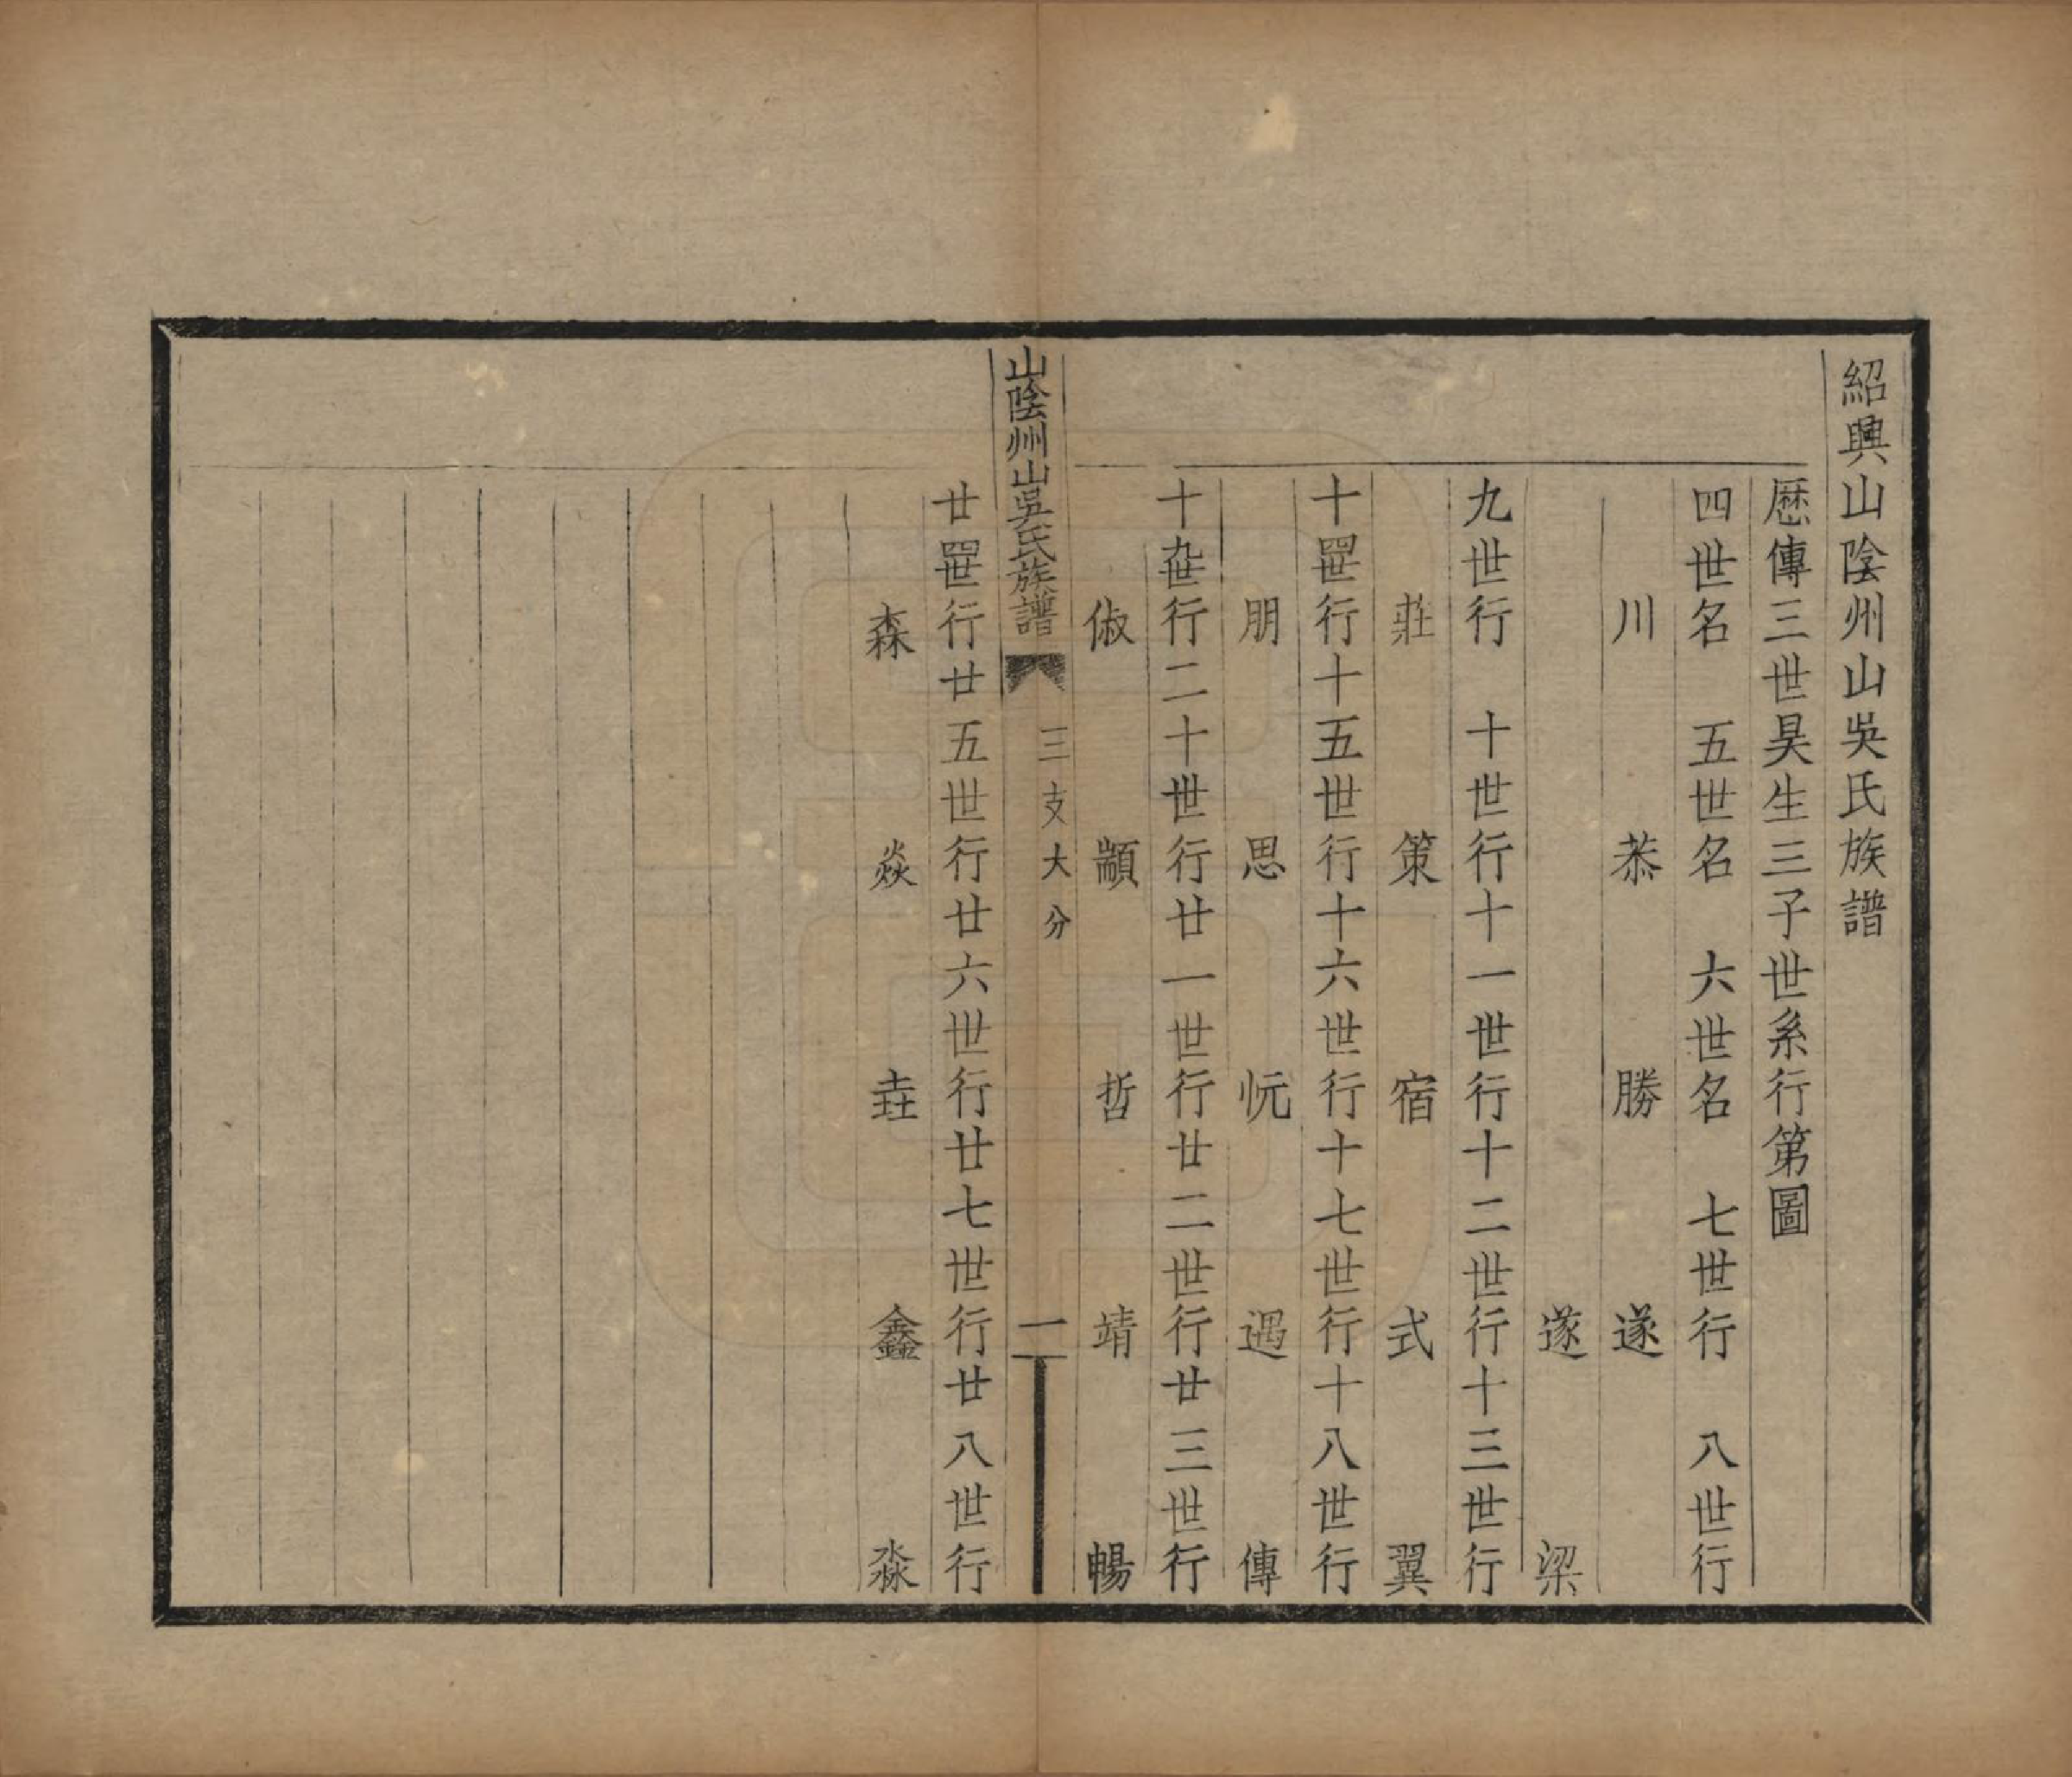 紹興山陰州山吳氏族譜
歷傳三世昊生三子世系行第圖
四世名　五世名　六世名　七世行　八世行
川　恭　勝　遂
遂　梁
九世行　十世行十一世行十二世行十三世行
莊　策　宿　式　翼
十四世行十五世行十六世行十七世行十八世行
朋　思　忨　遇　傳
十九世行二十世行廿一世行廿二世行廿三世行
俶　顓　哲　靖　暢
山陰州山吳氏族譜　三支大分　一
廿四世行廿五世行廿六世行廿七世行廿八世行
森　焱　垚　鑫　淼